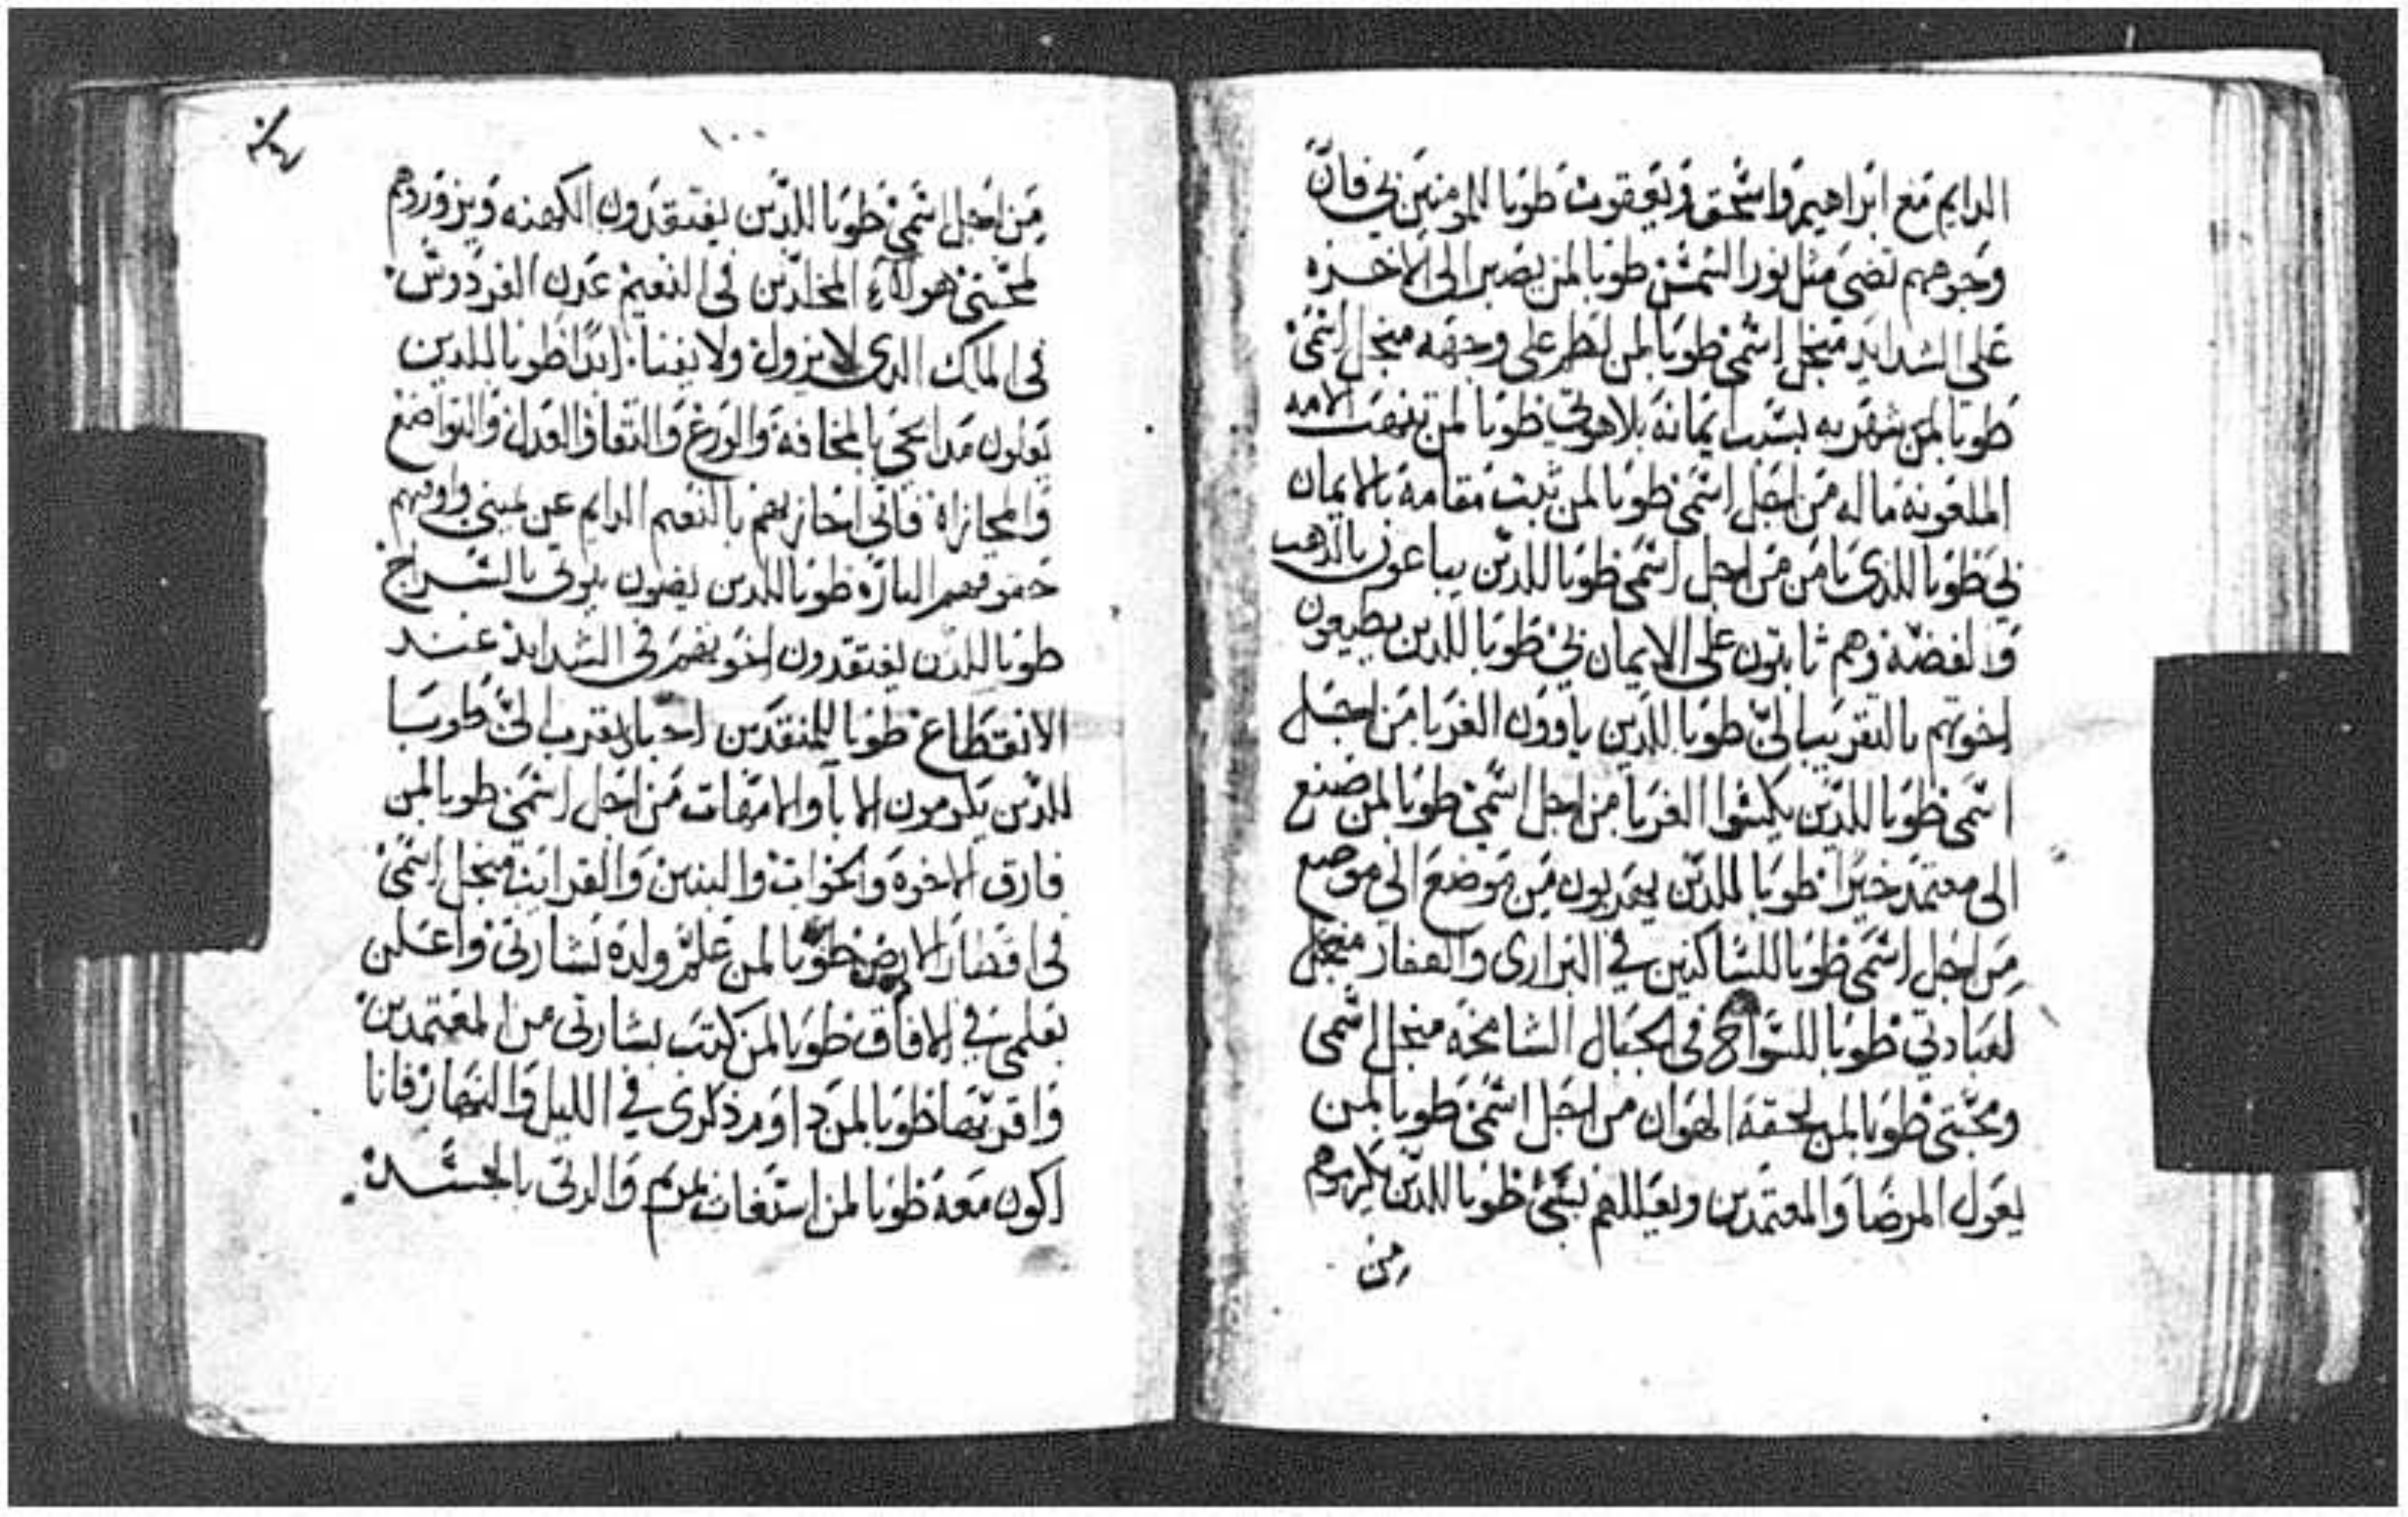 الدايم مع ابراهيم واسحق ويعقوب طوبا للمومنين بي فان
وجوههم تضي مثل نور الشمش طوبا لمن يصبر الى الاخره
على الشدايد منجل اسمي طوبا لمن لطم على وجهه منجل اسمي
طوبا لمن شهر به بسبب ايمانه بلاهوتي طوبا لمن نهبت الامه
الملعونه ماله من اجل اسمي طوبا لمن ثبت مقامه بالايمان
بي طوبا للذي يامن من اجل اسمي طوبا للدين يباعون بالدهب
والفضه وهم ثابتون على الايمان بي طوبا للدين يطيعون
اخوتهم بالتقريب الي طوبا للدين ياوون الغربا من اجل
اسمي طوبا للدين يكسوا الغربا من اجل اسمي طوبا لمن صنع
الى معتمد خيرا طوبا للدين يهربون من موضع الي موضع
من اجل اسمي طوبا للساكنين في البراري والقفار منجل
لعبادتي طوبا للسواح في الجبال الشامخه منجل اسمي
ومحبتي طوبا لمن لحقه الهوان من اجل اسمي طوبا لمن
يعول المرضا والمعتمدين ويعيللهم بشي طوبا للدين يكرموهم
من
١٠٠
من اجل اسمي طوبا للدين يفتقدون الكهنه ويزوروهم
لمحبتي هولاء المخلدين في النعيم عدن الفردوس
في الملك الدي لا يزول ولا يفنا ابدا طوبا للدين
يعلون مدابحي بالمخافه والورع والتقا والعدل والتواضع
والمجازاة فاني اجازيهم بالنعيم الدايم عن يميني واوفيهم
حقوقهم الباره طوبا للدين يضون بيوتي بالسراج
طوبا للدين يفتقدون اخويهم في الشدايد عند
الانقطاع طوبا للمتقدين احبا يقرب الي طوبا
للدين يكرمون الابا والامهات من اجل اسمي طوبا لمن
فارق الاخوه والخوات والبنين والقرايب منجل اسمي
في اقطار الارض طوبا لمن علم ولده بشارتي واعلن
بعلمي في الافاق طوبا لمن كتب بشارتي من المعتمدين
واقر بها طوبا لمن داوم ذكري في الليل والنهار فانا
اكون معه طوبا لمن استغات بمريم والدتي بالجسد